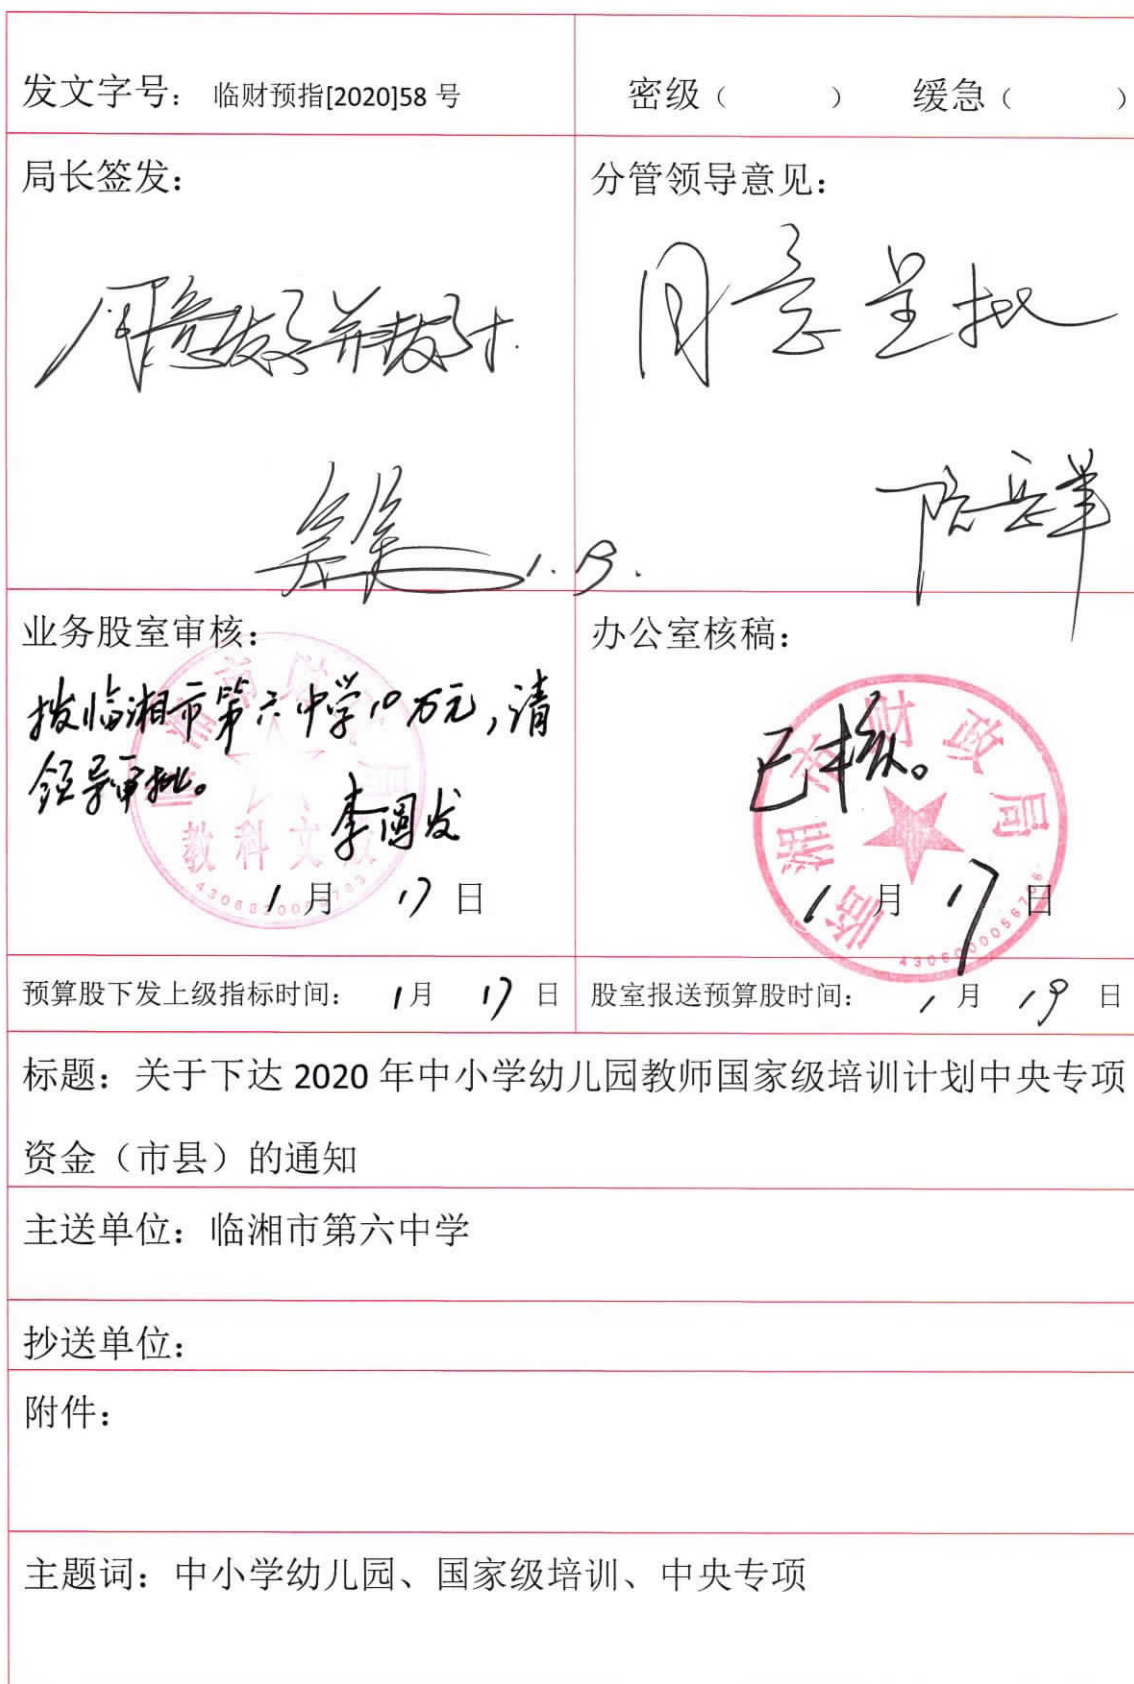 发文字号： 临财预指[2020]58 号
密级（　　） 缓急（　　）
局长签发：
分管领导意见：
同意呈批
1.19.
业务股室审核：
拨临湘市第六中学10万元，请
领导审批。
李国发
教科文股
1 月 17 日
办公室核稿：
已核。
临湘市财政局
1 月 17 日
预算股下发上级指标时间： 1月 17 日
股室报送预算股时间： 1 月 19 日
标题：关于下达 2020 年中小学幼儿园教师国家级培训计划中央专项
资金（市县）的通知
主送单位：临湘市第六中学
抄送单位：
附件：
主题词：中小学幼儿园、国家级培训、中央专项